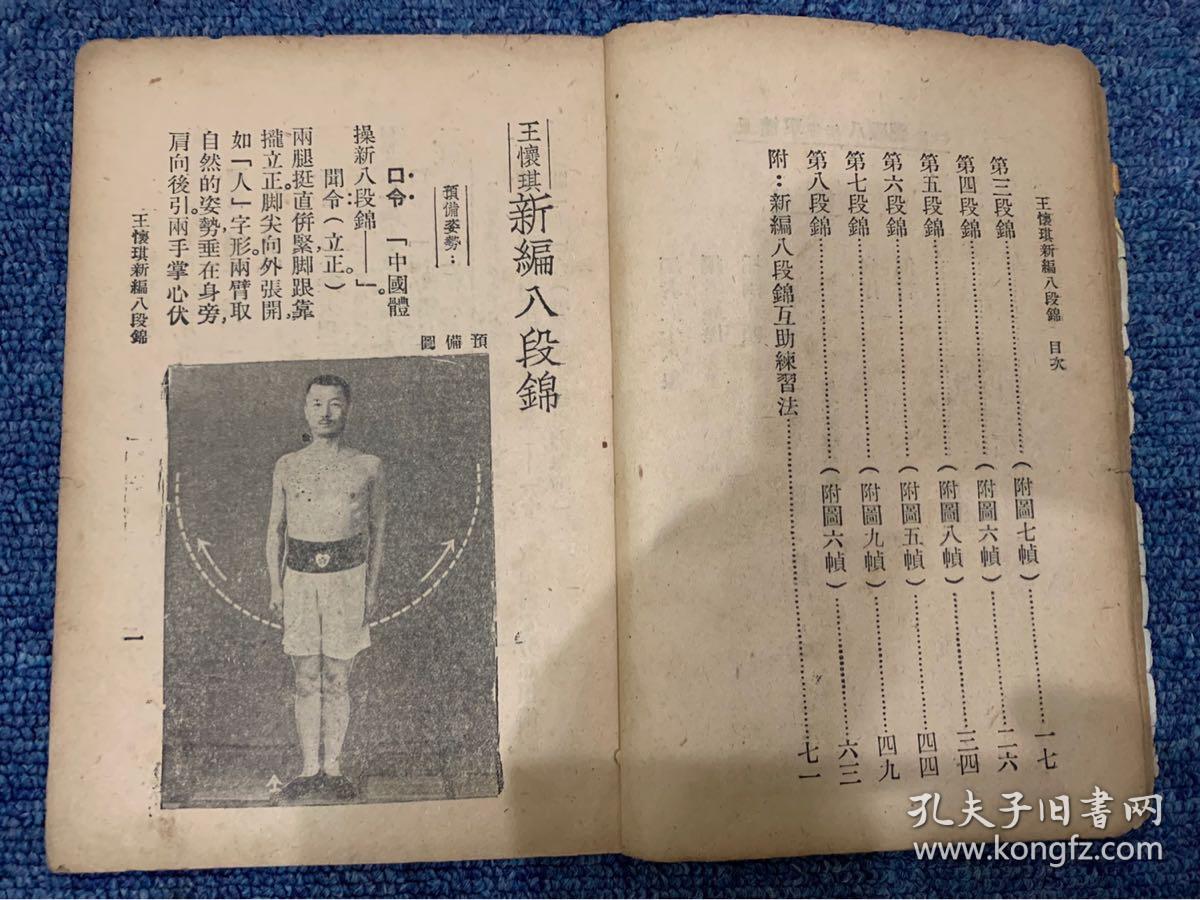 王懷琪新編八段錦　目次
第三段錦……………(附圖七幀)……………一七
第四段錦……………(附圖六幀)……………二六
第五段錦……………(附圖八幀)……………三四
第六段錦……………(附圖五幀)……………四四
第七段錦……………(附圖九幀)……………四九
第八段錦……………(附圖六幀)……………六三
附：新編八段錦互助練習法……………七一
王懷琪新編八段錦
預備姿勢：
口令　「中國體
操新八段錦——」。
聞令(立正。)
兩腿挺直，併緊脚跟靠
攏立正。脚尖向外張開，
如「人」字形。兩臂取
自然的姿勢，垂在身旁，
肩向後引。兩手掌心伏
預備圖
王懷琪新編八段錦
一
孔夫子旧书网
www.kongfz.com